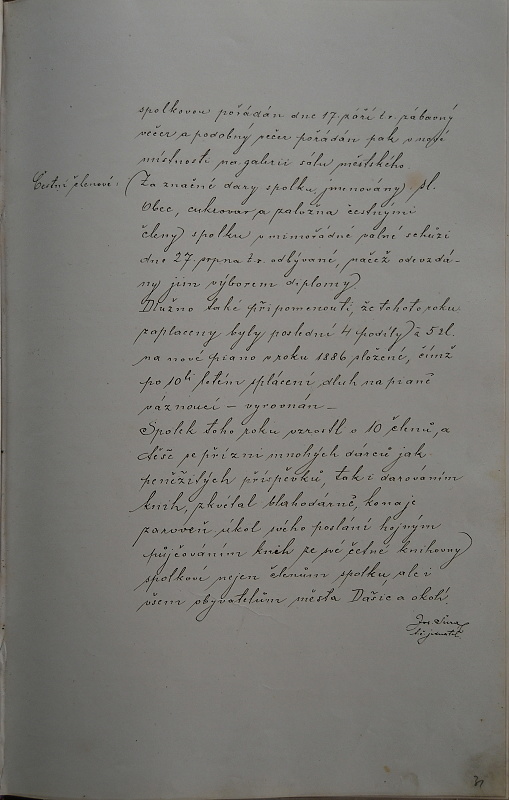 spolkovou pořádán dne 17. září t.r. zábavný
večer a podobný večer pořádán pak v nové
místnosti na galerii sálu městského.
Čestní členové: (Za značné dary spolku jmenovány) sl.
Obec, cukrovar a záložna čestnými
členy) spolku v mimořádné valné schůzi
dne 27. srpna t.r. odbývané, načež odevzdá-
ny jim výborem diplomy).
Dlužno také připomenouti, že tohoto roku
zaplaceny byly poslední 4 podíly) à 5 zl.
na nové piano v roku 1886 složené, čímž
po 10ti letém splácení dluh na pianě
váznoucí – vyrovnán –
Spolek toho roku vzrostl o 10 členů, a
těše se přízni mnohých dárců jak
peněžitých příspěvků, tak i darováním
knih, zkvétal blahodárně, konaje
zároveň úkol svého poslání hojným
půjčováním knih ze své četné knihovny)
spolkové nejen členům spolku, ale i
všem obyvatelům města Dašic a okolí.
Jos.
t.č. jednatel